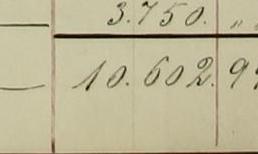 3.750. „
10.602.9